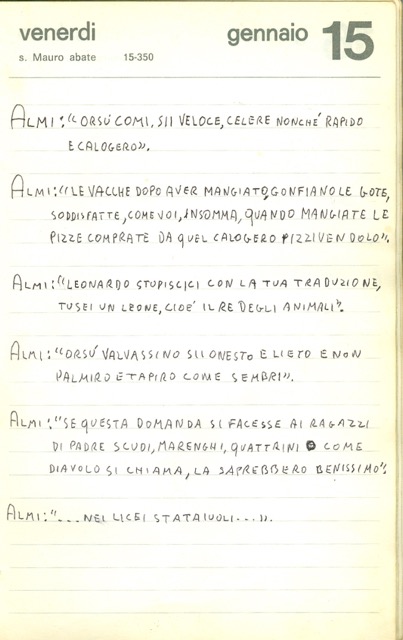 venerdi gennaio 15
s. Mauro abate 15-350
ALMI: "ORSÚ COMI, SII VELOCE, CELERE NONCHÉ RAPIDO
E CALOGERO".
ALMI: "LE VACCHE DOPO AVER MANGIATO, GONFIANO LE GOTE,
SODDISFATTE, COME VOI, INSOMMA, QUANDO MANGIATE LE
PIZZE COMPRATE DA QUEL CALOGERO PIZZIVENDOLO".
ALMI: "LEONARDO STUPISCICI CON LA TUA TRADUZIONE,
TU SEI UN LEONE, CIOÉ IL RE DEGLI ANIMALI".
ALMI: "ORSÚ VALVASSINO SII ONESTO E LIETO E NON
PALMIRO E TAPIRO COME SEMBRI".
ALMI: "SE QUESTA DOMANDA SI FACESSE AI RAGAZZI
DI PADRE SCUDI, MARENGHI, QUATTRINI COME
DIAVOLO SI CHIAMA, LA SAPREBBERO BENISSIMO".
ALMI: "... NEI LICEI STATAIUOLI...".